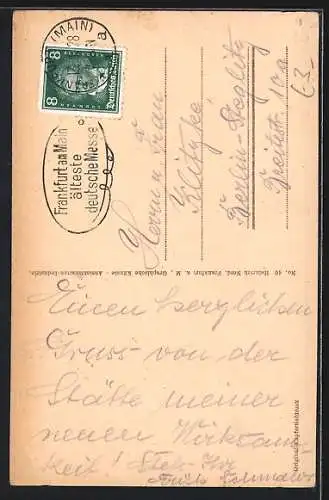 (MAIN)
8 8
Deutsches Reich
Frankfurt am Main
älteste
deutsche Messe
Herrn u Frau
Klitzke
Berlin-Steglitz
Breitestr. 10a
£3.-
No. 40 Heinrich Nerd, Frankfurt a. M., Graphische Kunst- Ansichtskarten-Industrie.
Einen herzlichen
Gruss von der
Stätte meiner
neuen Wirksam-
keit! Stets Ihr
Original-Kupfertiefdruck